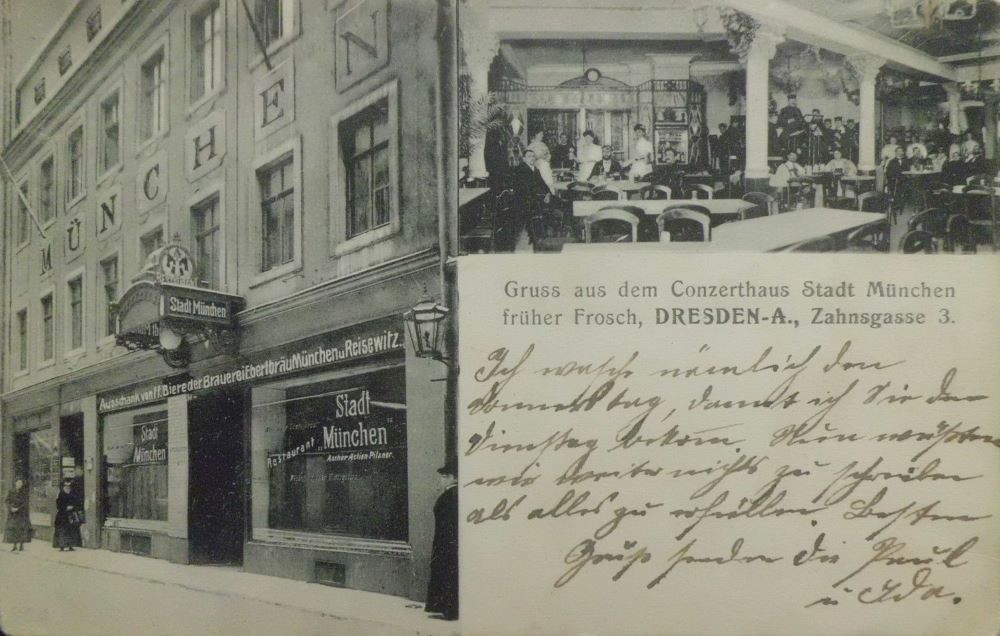 MÜNCHEN
Stadt München
Ausschank von ff. Biere der Brauerei Eberlbräu München u. Reisewitz.
Stadt
München
Restaurant
Stadt
„München”
Ascher Actien Pilsner.
Gruss aus dem Conzerthaus Stadt München
früher Frosch, DRESDEN-A., Zahnsgasse 3.
Ich wasche nämlich den
Donnerstag, damit ich Sie den
Dienstag bekom. Nun wüßten
wir weiter nichts zu schreiben
als alles zu erfüllen. Besten
Gruß senden Die Paul
u Ida.